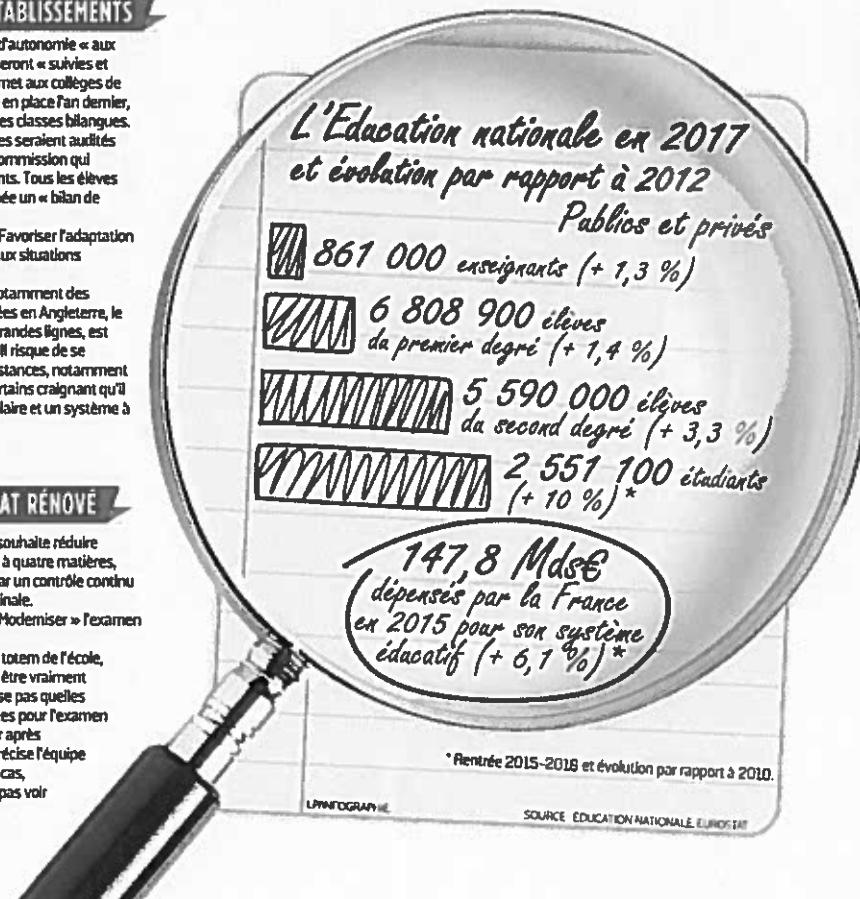 TABLISSEMENTS
d'autonomie « aux
eront « suivies et
met aux collèges de
en place l'an dernier,
es classes bilangues.
es seraient audités
ommission qui
nts. Tous les élèves
ée un « bilan de
Favoriser l'adaptation
ux situations
otamment des
ées en Angleterre, le
randes lignes, est
Il risque de se
stances, notamment
rtains craignant qu'il
laire et un système à
AT RÉNOVÉ
souhaite réduire
à quatre matières,
ar un contrôle continu
inale.
Moderniser » l'examen
totem de l'école,
être vraiment
se pas quelles
es pour l'examen
r après
récise l'équipe
cas,
pas voir
L'Education nationale en 2017
et évolution par rapport à 2012
Publics et privés
861 000 enseignants (+ 1,3 %)
6 808 900 élèves
du premier degré (+ 1,4 %)
5 590 000 élèves
du second degré (+ 3,3 %)
2 551 100 étudiants
(+ 10 %)*
147,8 Mds€
dépensés par la France
en 2015 pour son système
éducatif (+ 6,1 %)*
* Rentrée 2015-2016 et évolution par rapport à 2010.
SOURCE ÉDUCATION NATIONALE, EUROSTAT